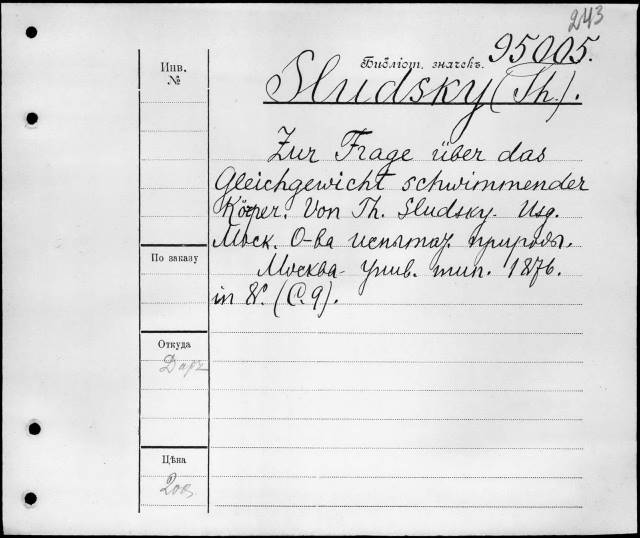 243
95005.
Библіот. значекъ.
Инв.
№
Sludsky (Th.).
Zur Frage über das
Gleichgewicht schwimmender
Körper. Von Th. Sludsky. Изд.
Моск. О-ва испытат. природы.
Москва. унив. тип. 1876.
in 8°. (С. 9).
По заказу
Откуда
Даръ
Цѣна